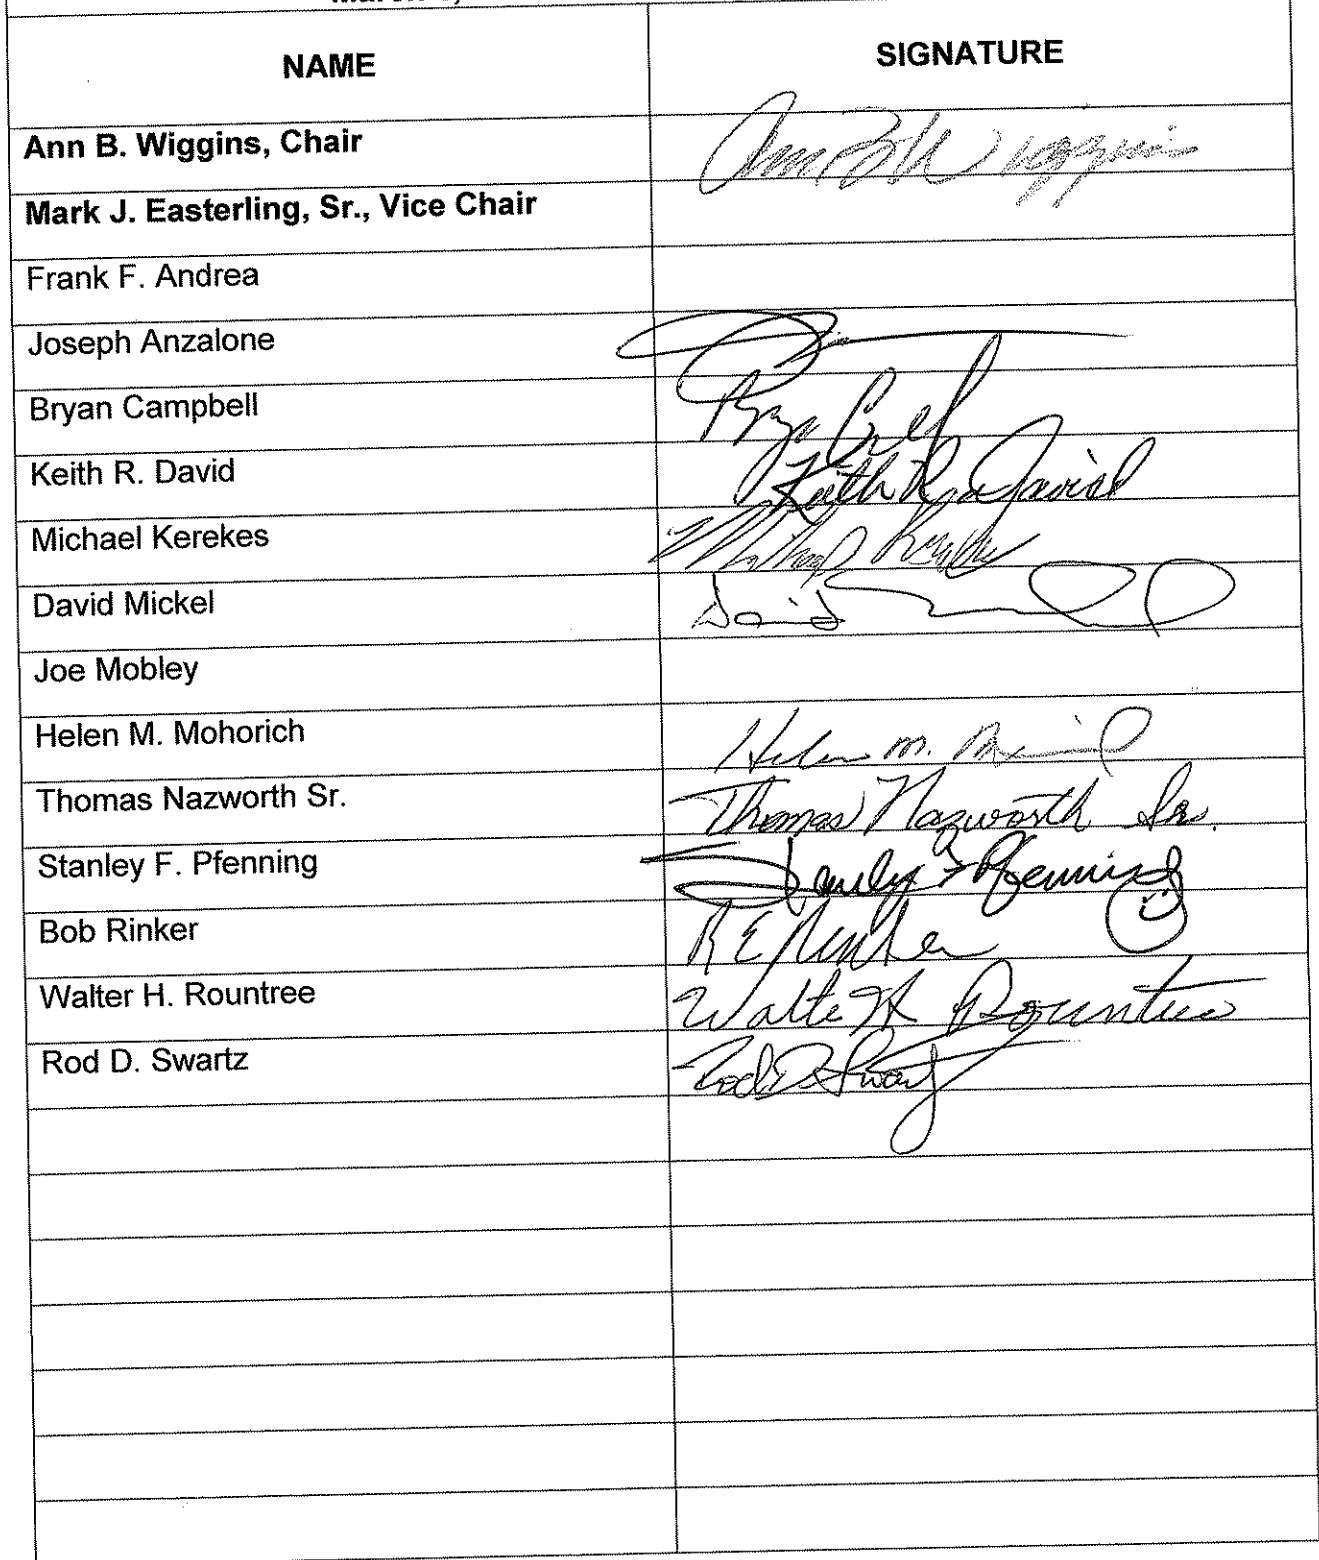 NAME SIGNATURE
Ann B. Wiggins, Chair
Mark J. Easterling, Sr., Vice Chair
Frank F. Andrea
Joseph Anzalone
Bryan Campbell
Keith R. David Keith R. David
Michael Kerekes
David Mickel David
Joe Mobley
Helen M. Mohorich Helen M.
Thomas Nazworth Sr. Thomas Nazworth Sr.
Stanley F. Pfenning Stanley F Pfenning
Bob Rinker R E Rinker
Walter H. Rountree Walter H Rountree
Rod D. Swartz Rod D Swartz